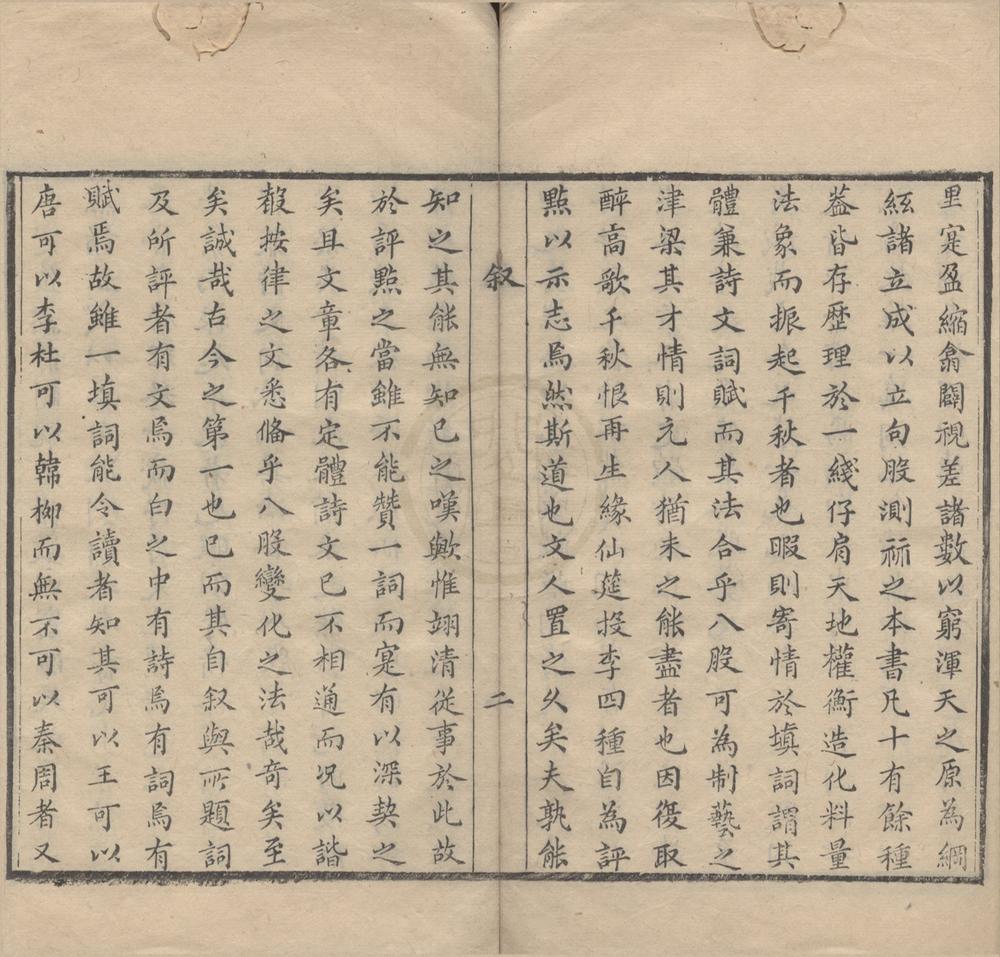 里寔盈縮翕闢視差諸數以窮渾天之原為綱
絃諸立成以立句股測祘之本書凡十有餘種
葢皆存歴理於一綫仔肩天地權衡造化料量
法象而振起千秋者也暇則寄情於塡詞謂其
體兼詩文詞賦而其法合乎八股可為制藝之
津梁其才情則元人猶未之能盡者也因復取
醉高歌千秋恨再生緣仙筵投李四種自為評
㸃以示志焉然斯道也文人置之久矣夫孰能
叙
二
知之其能無知已之嘆歟惟翊清從事於此故
於評㸃之當雖不能贊一詞而寔有以深契之
矣且文章各有定體詩文已不相通而况以諧
聲按律之文悉偹乎八股變化之法哉奇矣至
矣誠哉古今之第一也已而其自叙與所題詞
及所評者有文焉而白之中有詩焉有詞焉有
賦焉故雖一填詞能令讀者知其可以王可以
唐可以李杜可以韓柳而無不可以秦周者又